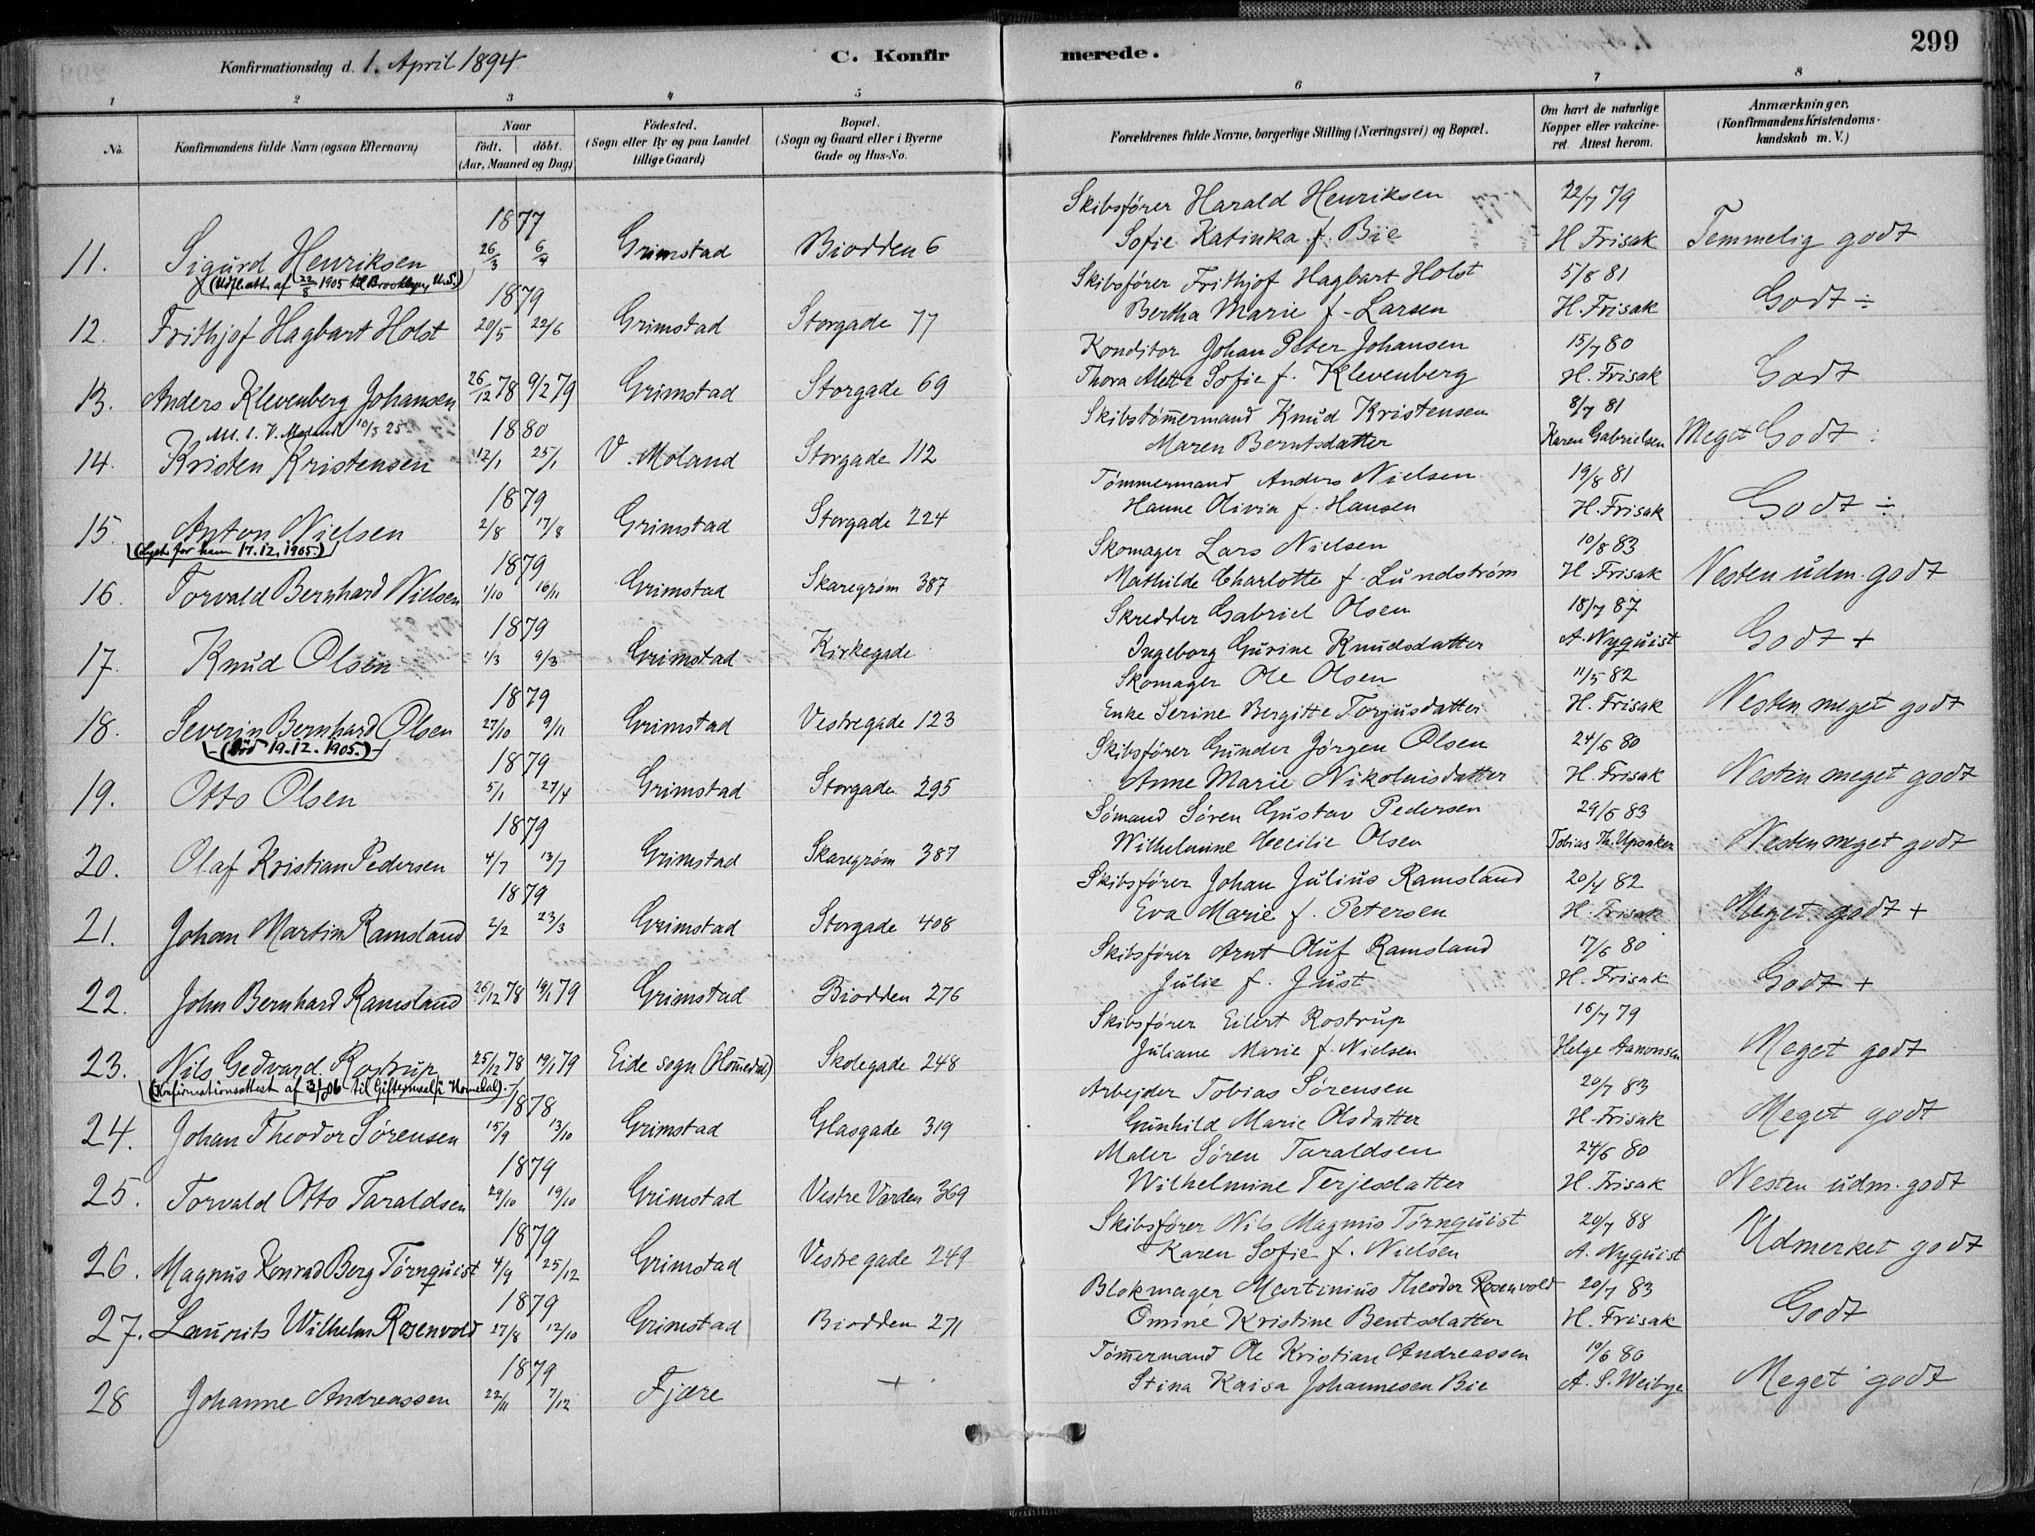 299
Konfirmationsdag d. 1. April 1894
C. Konfirmerede.
1 2 3 4 5 6 7 8
No. Konfirmandens fulde Navn (ogsaa Efternavn) Naar født, døbt. (Aar, Maaned og Dag) Fødested. (Sogn eller By og paa Landet tillige Gaard) Bopæl. (Sogn og Gaard eller i Byerne Gade og Hus-No. Forældrenes fulde Navne, borgerlige Stilling (Næringsvei) og Bopæl. Om havt de naturlige Kopper eller vakcineret. Attest herom. Anmærkninger. (Konfirmandens Kristendomskundskab m. V.)
1877 Skibsfører Harald Henriksen 22/7 79
11. Sigurd Henriksen 26/3 6/4 Grimstad Biodden 6 Sofie Katinka f. Bie H Frisak Temmelig godt
(Udfl.att. af 22/8 1905 til Brooklyn, U.S.)
1879 Skibsfører Frithjof Hagbart Holst 5/8 81
12. Frithjof Hagbart Holst 20/5 22/6 Grimstad Storgade 77 Bertha Marie f. Larsen H. Frisak Godt ÷
Konditor Johan Peter Johansen 15/7 80
13. Anders Klevenberg Johansen 26/12 78 9/2 79 Grimstad Storgade 69 Thora Alette Sofie f. Klevenberg H. Frisak Godt
V. Moland 10/3 25
1880 Skibstømmermand Knud Kristensen 8/7 81
14. Kristen Kristensen 12/1 25/1 V. Moland Storgade 112 Maren Berntsdatter Karen Gabrielsen Meget Godt
1879 Tømmermand Anders Nielsen 19/8 81
15. Anton Nielsen 2/8 17/8 Grimstad Storgade 224 Hanne Olivia f. Hansen H. Frisak Godt ÷
(Lyst for ham 17.12.1905.)
1879 Skomager Lars Nielsen 10/8 83
16. Torvald Bernhard Nielsen 1/10 16/11 Grimstad Skaregrøm 387 Mathilde Charlotte f. Lundstrøm H Frisak Nesten udm. godt
1879 Skredder Gabriel Olsen 18/7 87
17. Knud Olsen 1/3 9/3 Grimstad Kirkegade Ingeborg Gurine Knudsdatter A. Nyquist Godt +
1879 Skomager Ole Olsen 11/5 82
18. Severin Bernhard Olsen 27/10 9/11 Grimstad Vestregade 123 Enke Serine Bergitte Torjusdatter H. Frisak Nesten meget godt
(Død 19.12.1905.)
1879 Skibsfører Gunder Jørgen Olsen 24/6 80
19. Otto Olsen 5/1 27/4 Grimstad Storgade 295 Anne Marie Nikolaisdatter H. Frisak Nesten meget godt
1879 Sømand Søren Gustav Pedersen 29/6 83
20. Olaf Kristian Pedersen 4/7 13/7 Grimstad Skaregrøm 387 Wilhelmine Cecilie Olsen Tobias Th. Upsaker Nesten meget godt
1879 Skibsfører Johan Julius Ramsland 20/4 82
21. Johan Martin Ramsland 2/2 23/3 Grimstad Storgade 408 Eva Marie f. Petersen H. Frisak Meget godt +
Skibsfører Arnt Oluf Ramsland 17/6 80
22. John Bernhard Ramsland 26/12 78 19/1 79 Grimstad Biodden 276 Julie f. Just H. Frisak Godt +
Skibsfører Eilert Rostrup 16/7 79
23. Nils Gedvard Rostrup 25/12 78 19/1 79 Eide sogn (Homedal) Skolegade 248 Juliane Marie f. Nielsen Helge Aanonsen Meget godt
(Konfirmationsattest af 3/1 06 til Giftermaal i Homedal)
1878 Arbejder Tobias Sørensen 20/7 83
24. Johan Theodor Sørensen 15/9 13/10 Grimstad Glasgade 319 Gunhild Marie Olsdatter H. Frisak Meget godt
1879 Maler Søren Taraldsen 24/6 80
25. Torvald Otto Taraldsen 29/10 19/10 Grimstad Vestre Varden 369 Wilhelmine Terjesdatter H. Frisak Nesten udm. godt
1879 Skibsfører Nils Magnus Tørnquist 20/7 88
26. Magnus Konrad Berg Tørnquist 4/9 25/12 Grimstad Vestregade 249 Karen Sofie f. Nielsen A. Nyquist Udmerket godt
1879 Blokmager Martinius Theodor Rosenvold 20/7 83
27. Laurits Wilhelm Rosenvold 27/8 12/10 Grimstad Biodden 271 Omine Kristine Bentsdatter H. Frisak Godt
1879 Tømmermand Ole Kristian Andreassen 10/6 80
28 Johanne Andreassen 22/11 7/12 Fjære + Stina Kaisa Johannesen Bie A. S. Weibye Meget godt